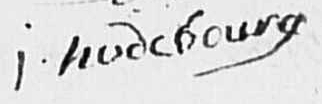 j. hudebourg